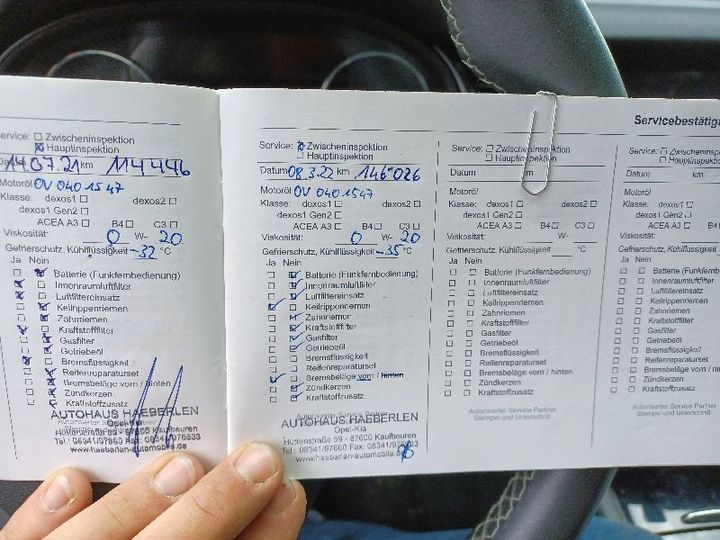 Servicebestätigu
Service: Zwischeninspektion
Hauptinspektion
14.07.21 km 114446
Motoröl OV 040 1547
Klasse: dexos1 dexos2
dexos1 Gen2
ACEA A3 B4 C3
Viskosität: 0 W- 20
Gefrierschutz, Kühlflüssigkeit -32 °C
Ja Nein
Batterie (Funkfernbedienung)
Innenraumluftfilter
Luftfiltereinsatz
Keilrippenriemen
Zahnriemen
Kraftstofffilter
Gasfilter
Getriebeöl
Bremsflüssigkeit
Reifenreparaturset
Bremsbeläge vorn / hinten
Zündkerzen
Kraftstoffzusatz
AUTOHAUS HAEBERLEN
Opel-Kia
Hüttenstraße 59 - 87600 Kaufbeuren
Tel.: 08341/97660 Fax: 08341/976633
www.haeberlen-automobile.de
Service: Zwischeninspektion
Hauptinspektion
Datum 08.3.22 km 146026
Motoröl OV 040 1547
Klasse: dexos1 dexos2
dexos1 Gen2
ACEA A3 B4 C3
Viskosität: 0 W- 20
Gefrierschutz, Kühlflüssigkeit -35 °C
Ja Nein
Batterie (Funkfernbedienung)
Innenraumluftfilter
Luftfiltereinsatz
Keilrippenriemen
Zahnriemen
Kraftstofffilter
Gasfilter
Getriebeöl
Bremsflüssigkeit
Reifenreparaturset
Bremsbeläge vorn / hinten
Zündkerzen
Kraftstoffzusatz
AUTOHAUS HAEBERLEN
Opel-Kia
Hüttenstraße 59 - 87600 Kaufbeuren
Tel.: 08341/97660 Fax: 08341/976633
www.haeberlen-automobile.de
Service: Zwischeninspektion
Hauptinspektion
Datum km
Motoröl
Klasse: dexos1 dexos2
dexos1 Gen2
ACEA A3 B4 C3
Viskosität: W-
Gefrierschutz, Kühlflüssigkeit °C
Ja Nein
Batterie (Funkfernbedienung)
Innenraumluftfilter
Luftfiltereinsatz
Keilrippenriemen
Zahnriemen
Kraftstofffilter
Gasfilter
Getriebeöl
Bremsflüssigkeit
Reifenreparaturset
Bremsbeläge vorn / hinten
Zündkerzen
Kraftstoffzusatz
Autorisierter Service Partner
Stempel und Unterschrift
Service: Zwischen
Hauptinsp
Datum
Motoröl
Klasse: dexos1
dexos1 Gen2
ACEA A3
Viskosität:
Gefrierschutz, Kühlflüssi
Ja Nein
Batterie (Fun
Innenrauml
Luftfilterein
Keilrippenr
Zahnrieme
Kraftstofff
Gasfilter
Getriebeö
Bremsflü
Reifenrep
Bremsbel
Zündkerz
Kraftstof
Autorisierter Se
Stempel und